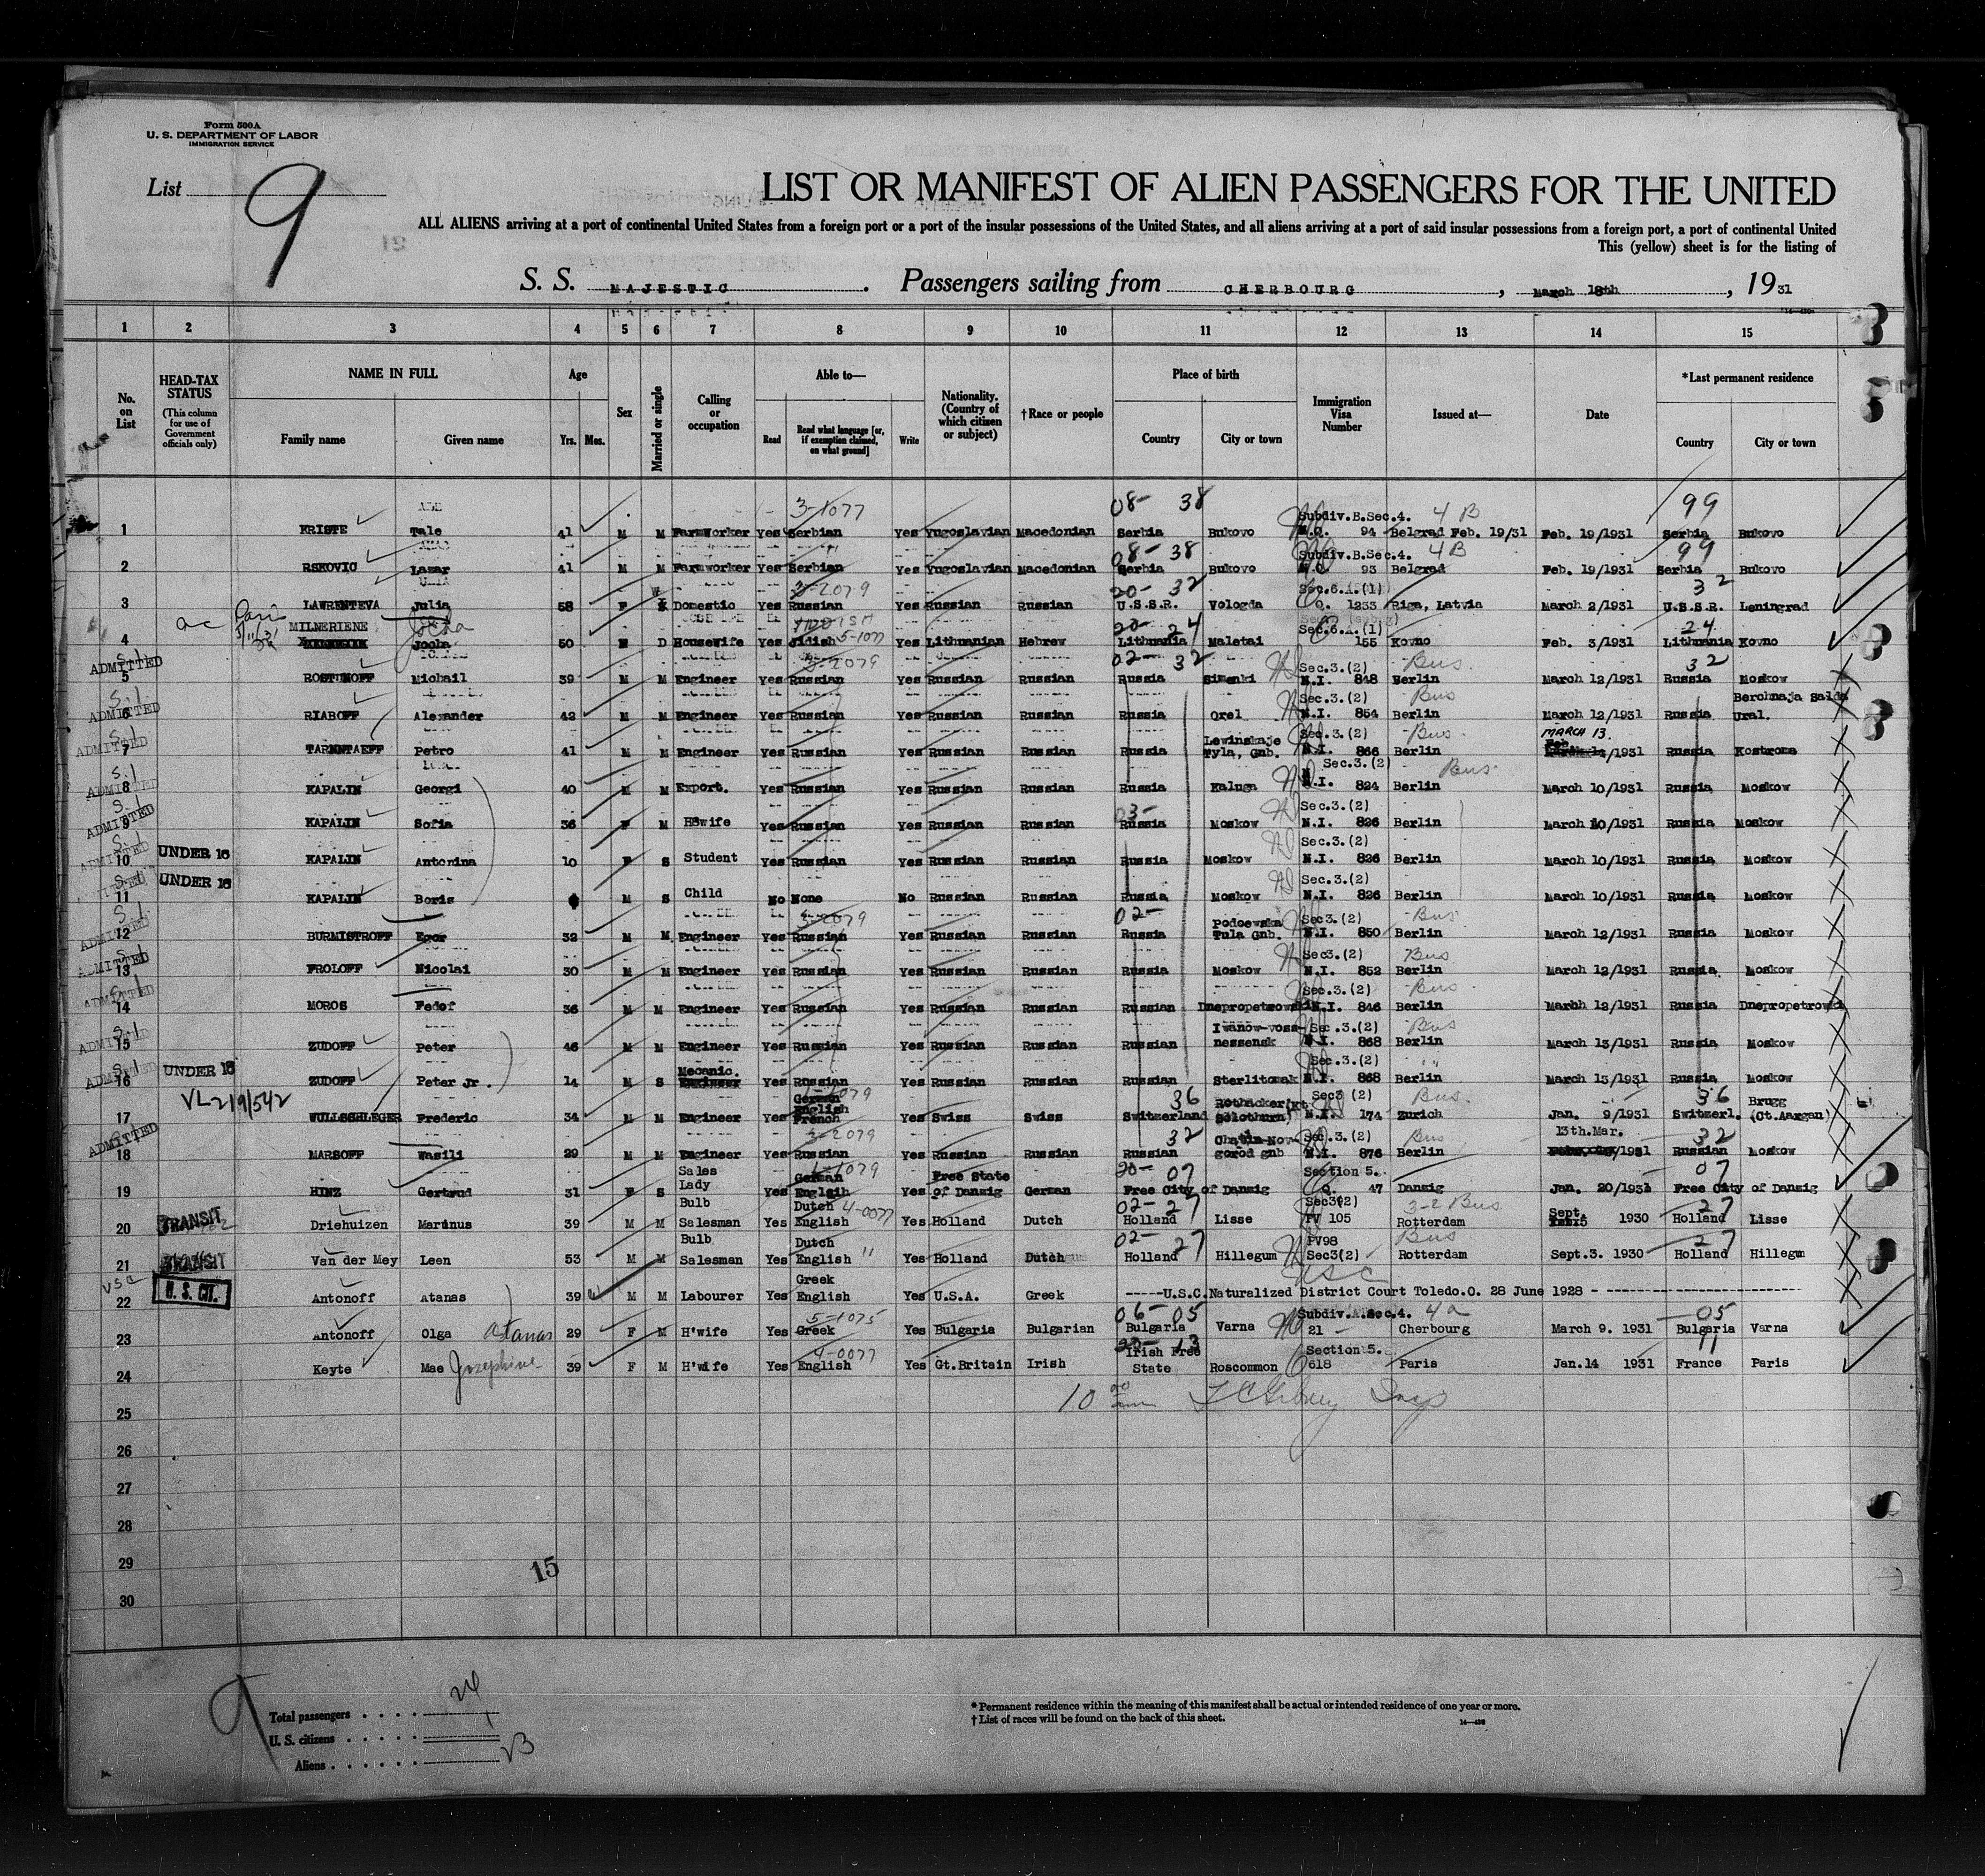 Form 500A
U. S. DEPARTMENT OF LABOR
IMMIGRATION SERVICE
List 9
LIST OR MANIFEST OF ALIEN PASSENGERS FOR THE UNITED
ALL ALIENS arriving at a port of continental United States from a foreign port or a port of the insular possessions of the United States, and all aliens arriving at a port of said insular possessions from a foreign port, a port of continental United
This (yellow) sheet is for the listing of
S. S. MAJESTIC . Passengers sailing from CHERBOURG , March 18th , 19 31
1 2 3 4 5 6 7 8 9 10 11 12 13 14 15
No. on List
HEAD-TAX STATUS (This column for use of Government officials only)
NAME IN FULL Family name Given name
Age Yrs. Mos.
Sex
Married or single
Calling or occupation
Able to— Read Read what language [or, if exemption claimed, on what ground] Write
Nationality. (Country of which citizen or subject)
†Race or people
Place of birth Country City or town
Immigration Visa Number
Issued at—
Date
*Last permanent residence Country City or town
3-1077 08- 38 Subdiv.B.Sec.4. 4B 99
1 KRISTE Tale 41 M M Farmworker Yes Serbian Yes Yugoslavian Macedonian Serbia Bukovo 94 Belgrad Feb. 19/31 Feb. 19/1931 Serbia Bukovo
08- 38 Subdiv.B.Sec.4. 4B 99
2 RSKOVIC Lazar 41 M M Farmworker Yes Serbian Yes Yugoslavian Macedonian Serbia Bukovo 93 Belgrad Feb. 19/1931 Serbia Bukovo
3-2079 20- 32 Sec.6.A.(1) 32
3 LAWRENTEVA Julia 58 F Domestic Yes Russian Yes Russian Russian U.S.S.R. Vologda Q. 1233 Riga, Latvia March 2/1931 U.S.S.R. Leningrad
MILNERIENE YIDDISH 20- 24 Sec.6.A.(1) 24
4 Joola 50 D Housewife Yes Jidish 5-1077 Yes Lithuanian Hebrew Lithuania Maletai 155 Kovno Feb. 3/1931 Lithuania Kovno
S.I ADMITTED 3-2079 02- 32 Sec.3.(2) Bus. 32
5 ROSTUNOFF Michail 39 M M Engineer Yes Russian Yes Russian Russian Russia Simenki N.I. 848 Berlin March 12/1931 Russia Moskow
S.I ADMITTED Sec.3.(2) Bus Berchnaja Salda
6 RIABOFF Alexander 42 M M Engineer Yes Russian Yes Russian Russian Russia Orel N.I. 854 Berlin March 12/1931 Russia Ural.
S.I ADMITTED Lewinskaje Sec.3.(2) Bus. MARCH 13.
7 Petro 41 M M Engineer Yes Russian Yes Russian Russian Russia Tyla, Gnb. N.I. 866 Berlin /1931 Russia Kostroma
S.I ADMITTED Sec.3.(2) Bus.
8 KAPALIN Georgi 40 M M Export. Yes Russian Yes Russian Russian Russia Kaluga N.I. 824 Berlin March 10/1931 Russia Moskow
S.I ADMITTED 03- Sec.3.(2)
9 KAPALIN Sofia 36 F M H'wife Yes Russian Yes Russian Russian Russia Moskow N.I. 826 Berlin March 10/1931 Russia Moskow
S.I ADMITTED UNDER 16 Sec.3.(2)
10 KAPALIN Antonina 10 F S Student Yes Russian Yes Russian Russian Russia Moskow N.I. 826 Berlin March 10/1931 Russia Moskow
S.I ADMITTED UNDER 16 Sec.3.(2)
11 KAPALIN Boris M S Child No None No Russian Russian Russia Moskow N.I. 826 Berlin March 10/1931 Russia Moskow
S.I ADMITTED 3-2079 02- Podoewska Sec3.(2) Bus
12 BURMISTROFF Egor 32 M M Engineer Yes Russian Yes Russian Russian Russia Tula Gnb. N.I. 850 Berlin March 12/1931 Russia Moskow
S.I ADMITTED Sec3.(2) Bus
13 FROLOFF Nicolai 30 M M Engineer Yes Russian Yes Russian Russian Russia Moskow N.I. 852 Berlin March 12/1931 Russia. Moskow
S.I ADMITTED Sec.3.(2) Bus.
14 MOROS Fedof 36 M M Engineer Yes Russian Yes Russian Russian Russian Dnepropetrowsk N.I. 846 Berlin March 12/1931 Russia Dnepropetrowsk
S.I ADMITTED Iwanow-voss- Sec.3.(2) Bus
15 ZUDOFF Peter 46 M M Engineer Yes Russian Yes Russian Russian Russian nessensk N.I. 868 Berlin March 13/1931 Russia Moskow
S.I ADMITTED UNDER 16 Mecanic. Sec.3.(2) "
16 ZUDOFF Peter Jr. 14 M S Engineer Yes Russian Yes Russian Russian Russian Sterlitomak N.I. 868 Berlin March 13/1931 Russia Moskow
VL219/542 German English 36 Rothacker(kt Sec3 (2) Bus. 36 Brugg
17 WULLSCHLEGER Frederic 34 M M Engineer Yes French Yes Swiss Swiss Switzerland Solothurn) N.I. 174 Zurich Jan. 9/1931 Switzerl. (Ct.Aargau)
ADMITTED 3-2079 32 Sec.3.(2) Bus 13th.Mar. 32
18 MARSOFF Wasili 29 M M Engineer Yes Russian Yes Russian Russian Russian gorod gnb N.I. 876 Berlin /1931 Russian Moskow
Sales Lady German 1-1079 Free State 20- 07 Section 5. 07
19 HINZ Gertrud 31 F S Yes English Yes of Danzig German Free City of Danzig Q. 47 Danzig Jan. 20/1931 Free City of Danzig
TRANSIT Bulb Dutch 4-0077 02- 27 Sec3(2) 3-2 Bus Sept. 27
20 Driehuizen Marinus 39 M M Salesman Yes English Yes Holland Dutch Holland Lisse PV 105 Rotterdam 1930 Holland Lisse
TRANSIT Bulb Dutch 02- 27 PV98 Bus 27
21 Van der Mey Leen 53 M M Salesman Yes English " Yes Holland Dutch Holland Hillegum Sec3(2) Rotterdam Sept.3. 1930 Holland Hillegum
USC U. S. CIT. Greek USC
22 Antonoff Atanas 39 M M Labourer Yes English Yes U.S.A. Greek -----U.S.C.Naturalized District Court Toledo.O. 28 June 1928
5-1075 06- 05 Subdiv.A.Sec.4. 4a 05
23 Antonoff Olga Atanas 29 F M H'wife Yes Greek Yes Bulgaria Bulgarian Bulgaria Varna 21 - Cherbourg March 9. 1931 Bulgaria Varna
4-0077 20- 13 Irish Free Section 5. 11
24 Keyte Mae Josephine 39 F M H'wife Yes English Yes Gt.Britain Irish State Roscommon 618 Paris Jan.14 1931 France Paris
25
26
27
28
29
15
30
9
Total passengers . . . . 24
U. S. citizens . . . . . 1
Aliens . . . . . . 23
* Permanent residence within the meaning of this manifest shall be actual or intended residence of one year or more.
† List of races will be found on the back of this sheet.